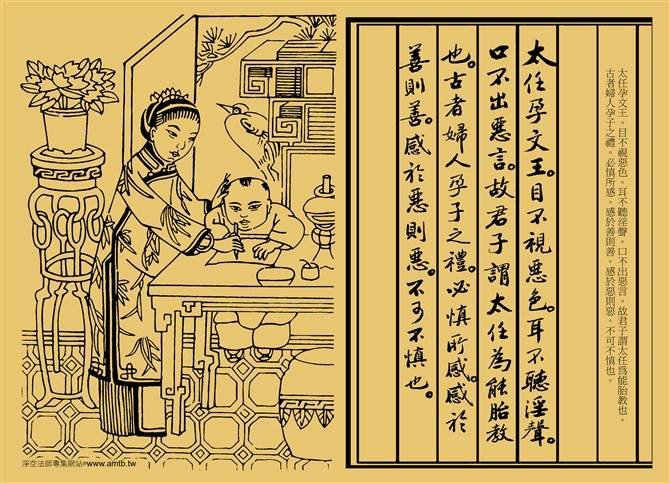 太任孕文王。目不視惡色。耳不聽淫聲。口不出惡言。故君子謂太任爲能胎教也。
古者婦人孕子之禮。必慎所感。感於善則善。感於惡則惡。不可不慎也。
太任孕文王。目不視惡色。耳不聽淫聲。
口不出惡言。故君子謂太任為能胎教
也。古者婦人孕子之禮。必慎所感。感於
善則善。感於惡則惡。不可不慎也。
淨空法師專集網站www.amtb.tw